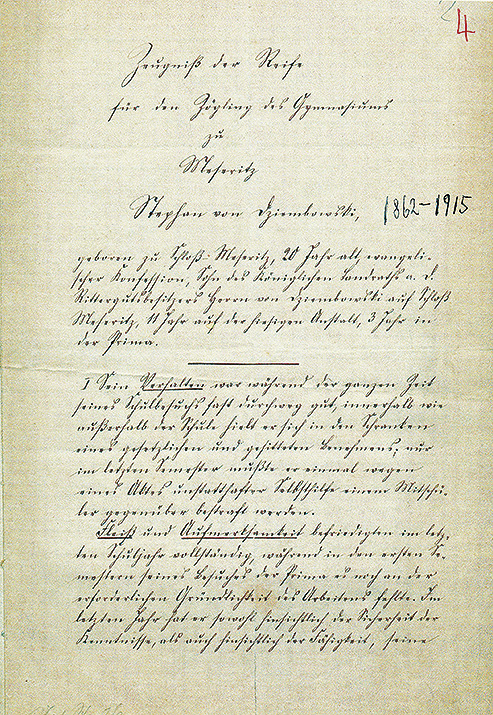 4
Zeugniß der Reife
für den Zögling des Gymnasiums
zu
Meseritz
Stephan von Dziembowski,
1862-1915
geboren zu Schloß-Meseritz, 20 Jahr alt, evangeli-
scher Konfession, Sohn des Königlichen Landraths a. D.
Rittergutsbesitzers Herrn von Dziembowski auf Schloß
Meseritz, 11 Jahr auf der hiesigen Anstalt, 3 Jahr in
der Prima.
I Sein Verhalten war während der ganzen Zeit
seines Schulbesuchs fast durchweg gut, innerhalb wie
außerhalb der Schule hielt er sich in den Schranken
eines gesetzlichen und gesitteten Benehmens; nur
im letzten Semester mußte er einmal wegen
eines Aktes unstatthafter Selbsthilfe einem Mitschü-
ler gegenüber bestraft werden.
Fleiß und Aufmerksamkeit befriedigten im letz-
ten Schuljahr vollständig, während in den ersten Se-
mestern seines Besuches der Prima es noch an der
erforderlichen Gründlichkeit des Arbeitens fehlte. Im
letzten Jahr hat er sowohl hinsichtlich der Sicherheit der
Kenntnisse, als auch hinsichtlich der Fähigkeit, seine